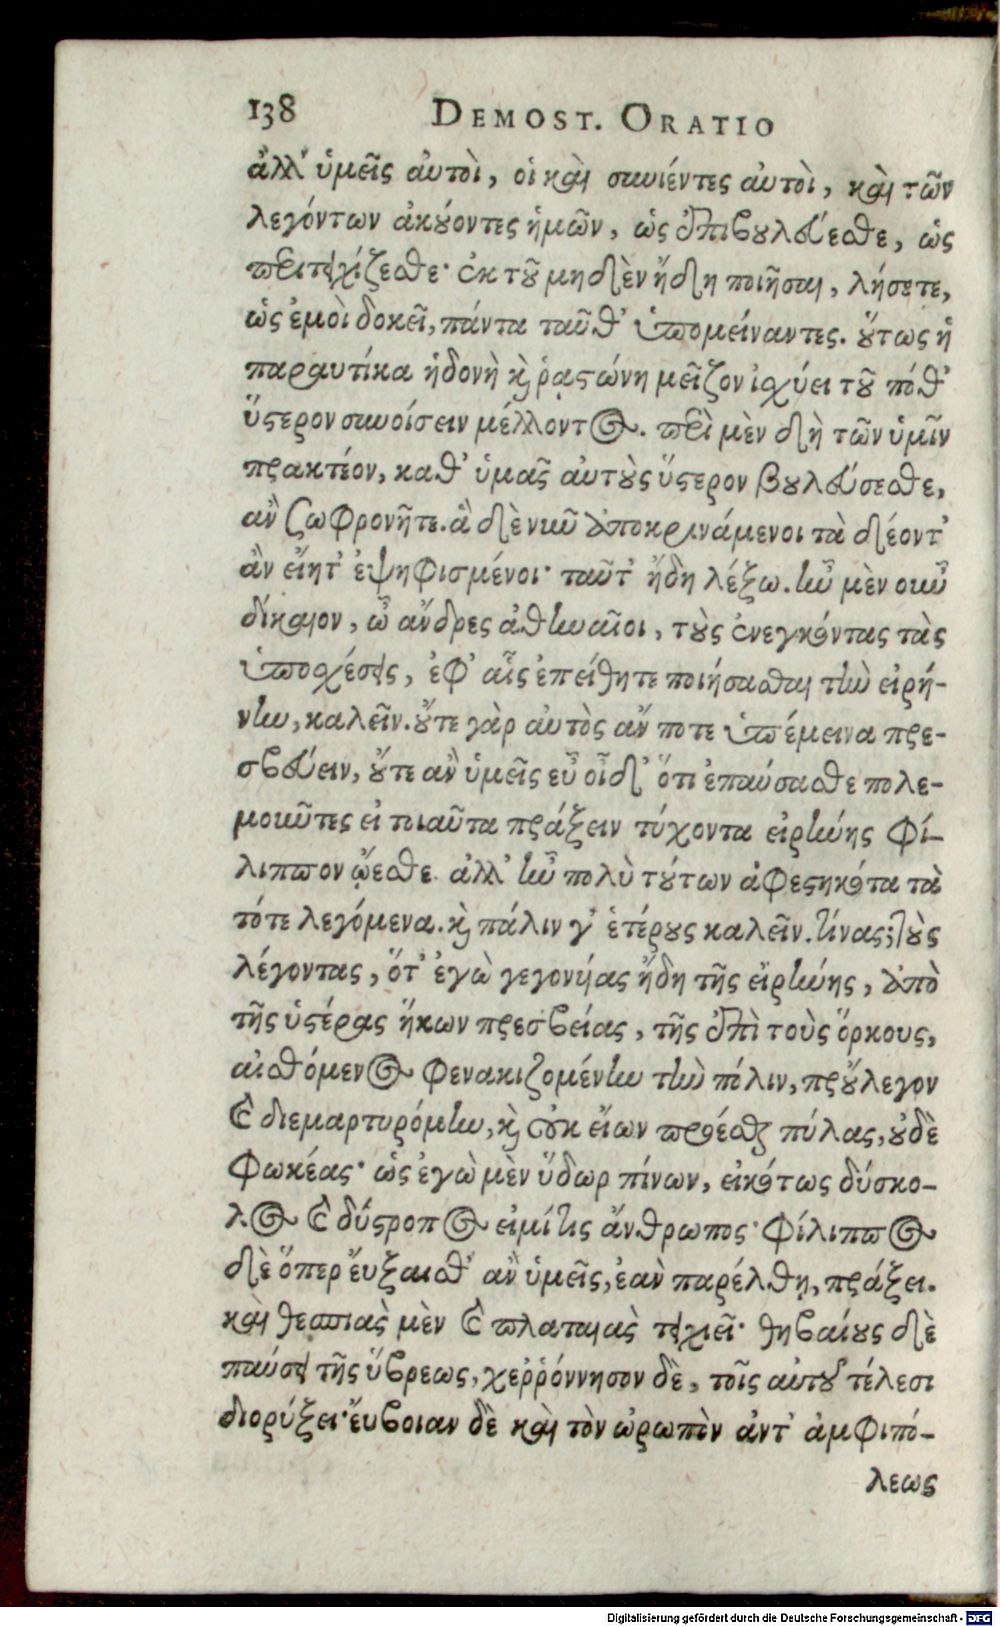 138 DEMOST. ORATIO
ἀλλ' ὑμεῖς αὐτοὶ, οἱ καὶ συνιέντες αὐτοὶ, καὶ τῶν
λεγόντων ἀκούοντες ἡμῶν, ὡς ἐπιβουλεύεσθε, ὡς
περιτειχίζεσθε· ἐκ τοῦ μηδὲν ἤδη ποιῆσαι, λήσετε,
ὡς ἐμοὶ δοκεῖ, πάντα ταῦθ' ὑπομείναντες. οὕτως ἡ
παραυτίκα ἡδονὴ καὶ ῥᾳστώνη μεῖζον ἰσχύει τοῦ πόθ'
ὕστερον συνοίσειν μέλλοντος. περὶ μὲν δὴ τῶν ὑμῖν
πρακτέον, καθ' ὑμᾶς αὐτοὺς ὕστερον βουλεύσεσθε,
ἂν ζωφρονῆτε. ἃ δὲ νῦν ἀποκρινάμενοι τὰ δέοντ'
ἂν εἴητ' ἐψηφισμένοι· ταῦτ' ἤδη λέξω. ἦν μὲν οὖν
δίκαιον, ὦ ἄνδρες ἀθηναῖοι, τοὺς ἐνεγκόντας τὰς
ὑποσχέσεις, ἐφ' αἷς ἐπείσθητε ποιήσασθαι τὴν εἰρή-
νην, καλεῖν. οὔτε γὰρ αὐτὸς ἄν ποτε ὑπέμεινα πρε-
σβεύειν, οὔτε ἂν ὑμεῖς εὖ οἶδ' ὅτι ἐπαύσασθε πολε-
μοῦντες εἰ τοιαῦτα πράξειν τύχοντα εἰρήνης Φί-
λιππον ᾤεσθε. ἀλλ' ἦν πολὺ τούτων ἀφεστηκότα τὰ
τότε λεγόμενα. καὶ πάλιν γ' ἑτέρους καλεῖν. τίνας; τοὺς
λέγοντας, ὅτ' ἐγὼ γεγονυίας ἤδη τῆς εἰρήνης, ἀπὸ
τῆς ὑστέρας ἥκων πρεσβείας, τῆς ἐπὶ τοὺς ὅρκους,
αἰσθόμενος φενακιζομένην τὴν πόλιν, προὔλεγον
καὶ διεμαρτυρόμην, καὶ οὐκ εἴων προέσθαι πύλας, οὐδὲ
Φωκέας· ὡς ἐγὼ μὲν ὕδωρ πίνων, εἰκότως δύσκο-
λος καὶ δύστροπος εἰμί τις ἄνθρωπος· Φίλιππος
δὲ ὅπερ εὔξαισθ' ἂν ὑμεῖς, ἐὰν παρέλθῃ, πράξει.
καὶ θεσπιὰς μὲν καὶ πλαταιὰς τειχιεῖ· θηβαίους δὲ
παύσει τῆς ὕβρεως, χερῤόννησον δὲ, τοῖς αὑτοῦ τέλεσι
διορύξει· εὔβοιαν δὲ καὶ τὸν ὠρωπὸν ἀντ' ἀμφιπό-
λεως
Digitalisierung gefördert durch die Deutsche Forschungsgemeinschaft - DFG